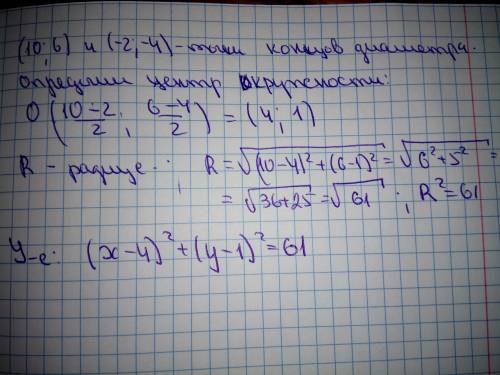 (10; 6) и (-2; -4) - точки концов диаметра.
Определим центр окружности:
O ( (10-2)/2 ; (6-4)/2 ) = (4; 1)
R - радиус ; R = √((10-4)² + (6-1)²) = √(6² + 5²) =
= √(36+25) = √61 ; R² = 61
У-е: (x-4)² + (y-1)² = 61